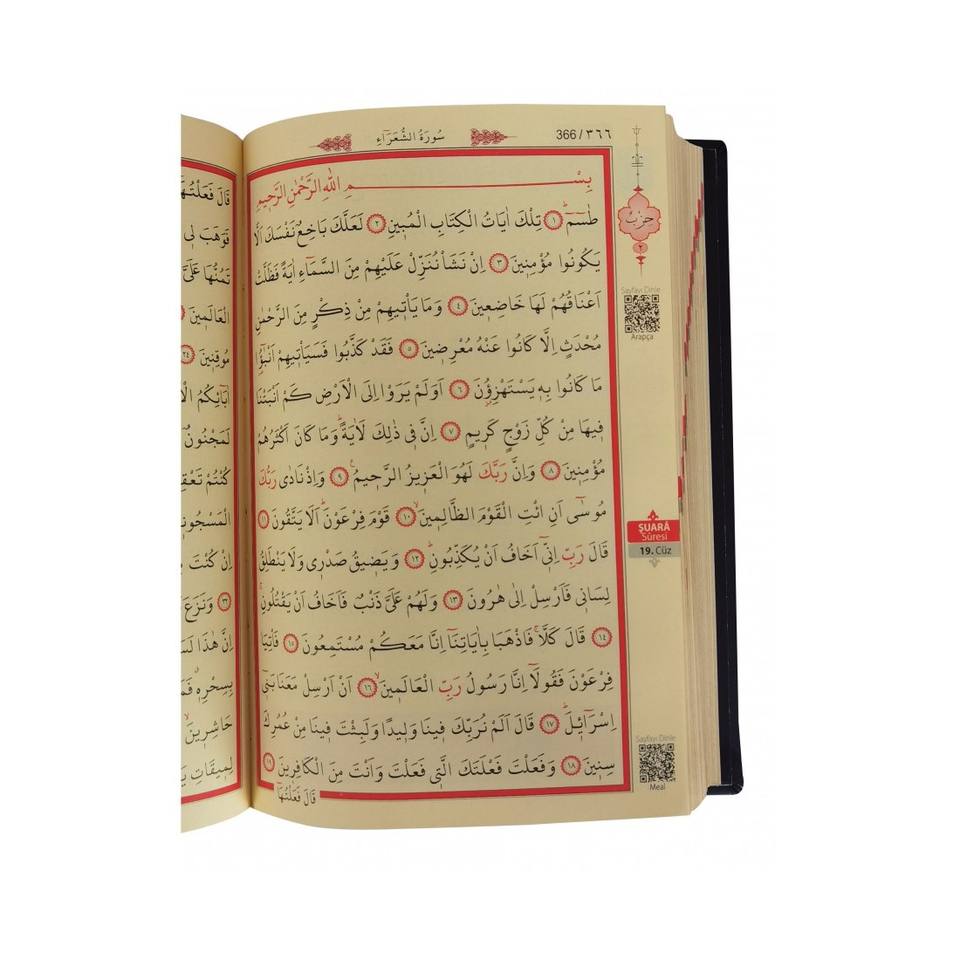 سُورَةُ الشُّعَرَٓاءِ
366/٣٦٦
بِسْمِ اللّٰهِ الرَّحْمٰنِ الرَّحِيمِ
طٰسٓمٓۜ ﴿١﴾ تِلْكَ اٰيَاتُ الْكِتَابِ الْمُبٖينِ ﴿٢﴾ لَعَلَّكَ بَاخِعٌ نَفْسَكَ اَلَّا
يَكُونُوا مُؤْمِنٖينَ ﴿٣﴾ اِنْ نَشَأْ نُنَزِّلْ عَلَيْهِمْ مِنَ السَّمَٓاءِ اٰيَةً فَظَلَّتْ
اَعْنَاقُهُمْ لَهَا خَاضِعٖينَ ﴿٤﴾ وَمَا يَأْتٖيهِمْ مِنْ ذِكْرٍ مِنَ الرَّحْمٰنِ
مُحْدَثٍ اِلَّا كَانُوا عَنْهُ مُعْرِضٖينَ ﴿٥﴾ فَقَدْ كَذَّبُوا فَسَيَأْتٖيهِمْ اَنْبٰٓؤُ۬ا
مَا كَانُوا بِهٖ يَسْتَهْزِؤُ۫نَ ﴿٦﴾ اَوَلَمْ يَرَوْا اِلَى الْاَرْضِ كَمْ اَنْبَتْنَا
فٖيهَا مِنْ كُلِّ زَوْجٍ كَرٖيمٍ ﴿٧﴾ اِنَّ فٖي ذٰلِكَ لَاٰيَةًۜ وَمَا كَانَ اَكْثَرُهُمْ
مُؤْمِنٖينَ ﴿٨﴾ وَاِنَّ رَبَّكَ لَهُوَ الْعَزٖيزُ الرَّحٖيمُ۟ ﴿٩﴾ وَاِذْ نَادٰى رَبُّكَ
مُوسٰٓى اَنِ ائْتِ الْقَوْمَ الظَّالِمٖينَۙ ﴿١٠﴾ قَوْمَ فِرْعَوْنَۜ اَلَا يَتَّقُونَ ﴿١١﴾
قَالَ رَبِّ اِنّٖٓي اَخَافُ اَنْ يُكَذِّبُونِۜ ﴿١٢﴾ وَيَضٖيقُ صَدْرٖي وَلَا يَنْطَلِقُ
لِسَانٖي فَاَرْسِلْ اِلٰى هٰرُونَ ﴿١٣﴾ وَلَهُمْ عَلَيَّ ذَنْبٌ فَاَخَافُ اَنْ يَقْتُلُونِۚ
﴿١٤﴾ قَالَ كَلَّاۚ فَاذْهَبَا بِاٰيَاتِنَٓا اِنَّا مَعَكُمْ مُسْتَمِعُونَ ﴿١٥﴾ فَأْتِيَا
فِرْعَوْنَ فَقُولَٓا اِنَّا رَسُولُ رَبِّ الْعَالَمٖينَۙ ﴿١٦﴾ اَنْ اَرْسِلْ مَعَنَا بَنٖٓي
اِسْرَٓائٖلَۜ ﴿١٧﴾ قَالَ اَلَمْ نُرَبِّكَ فٖينَا وَلٖيدًا وَلَبِثْتَ فٖينَا مِنْ عُمُرِكَ
سِنٖينَ ﴿١٨﴾ وَفَعَلْتَ فَعْلَتَكَ الَّتٖي فَعَلْتَ وَاَنْتَ مِنَ الْكَافِرٖينَ ﴿١٩﴾
قَالَ فَعَلْتُهَٓا
حزب
٢
Sayfayı Dinle
Arapça
ŞUARÂ
Sûresi
19. Cüz
Sayfayı Dinle
Meal
قَالَ فَعَلْتُهَٓا
فَوَهَبَ لٖي
تَمُنُّهَا عَلَيَّ
الْعَالَمٖينَ
مُوقِنٖينَ ﴿٢٤﴾
اٰبَٓائِكُمُ
لَمَجْنُونٌ
كُنْتُمْ
الْمَسْجُونٖينَ
اِنْ كُنْتَ
وَنَزَعَ
اِنَّ هٰذَا
بِسِحْرِهٖۗ
حَاشِرٖينَۙ
لِمٖيقَاتِ